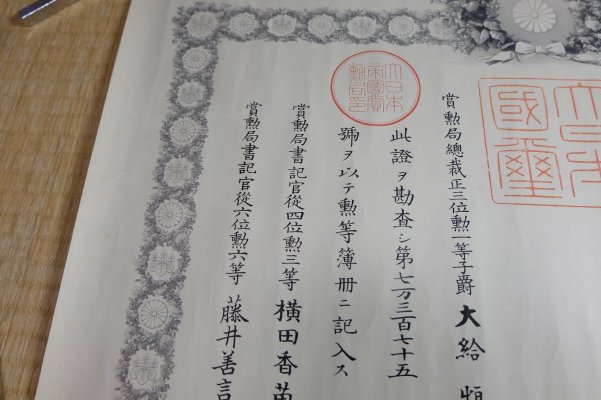 大日本
國璽
賞勲局總裁正三位勲一等子爵大給恒
此證ヲ勘査シ第七万三百七十五
號ヲ以テ勲等簿册ニ記入ス
大日本帝國賞勲局印
賞勲局書記官從四位勲三等横田香苗
賞勲局書記官從六位勲六等藤井善言